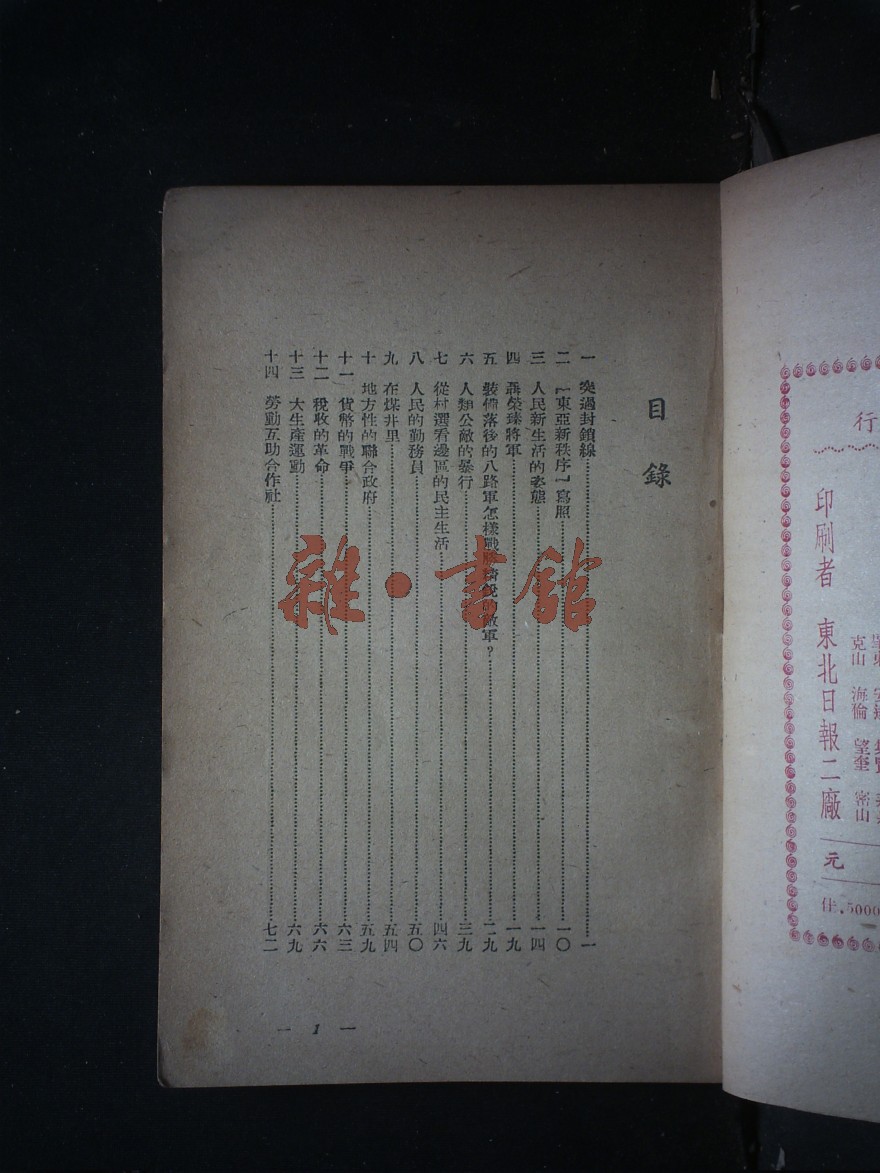 行
印刷者 東北日報二廠
克山 海倫 望奎 密山
元
5000
目錄
一 突過封鎖線 一
二 「東亞新秩序」寫照 一〇
三 人民新生活的姿態 一四
四 聶榮臻將軍 一九
五 裝備落後的八路軍怎樣戰勝精銳的敵軍？ 二九
六 人類公敵的暴行 三九
七 從村選看邊區的民主生活 四六
八 人民的勤務員 五〇
九 在煤井里 五四
十 地方性的聯合政府 五九
十一 貨幣的戰爭 六三
十二 稅收的革命 六六
十三 大生產運動 六九
十四 勞動互助合作社 七二
— 1 —
雜·書館